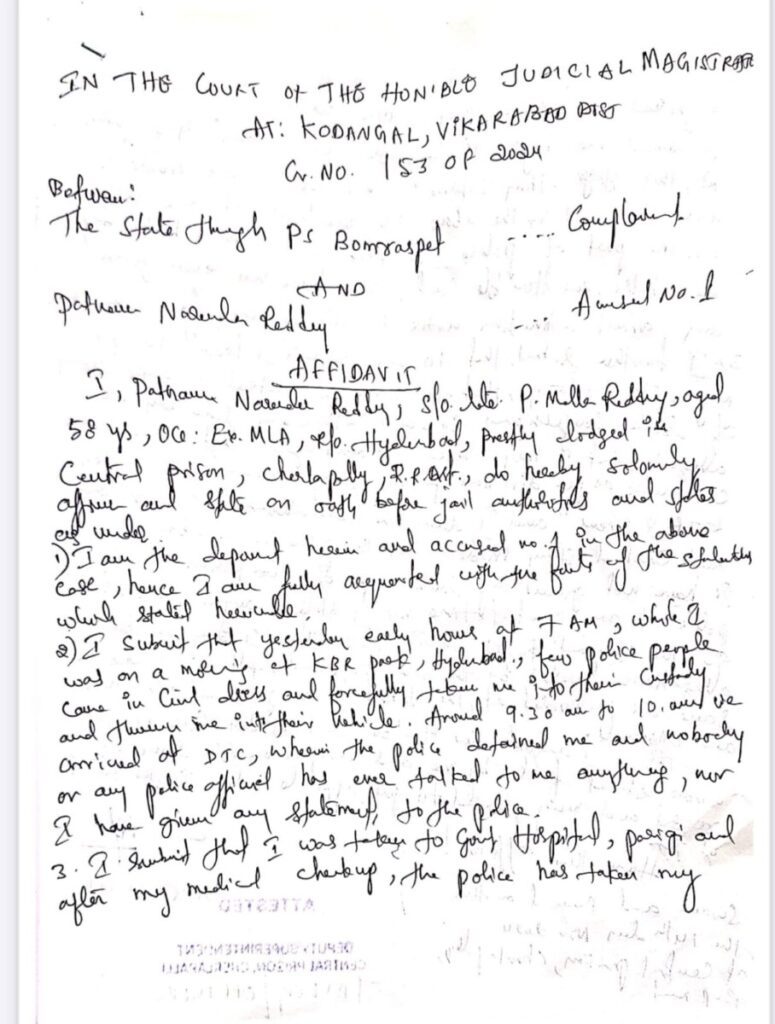 IN THE COURT OF THE HON'BLE JUDICIAL MAGISTRATE
AT: KODANGAL, VIKARABAD DIST
Cr. No. 153 OF 2024
Between:
The State through PS Bomraspet ..... Complainant
AND
Patnam Narender Reddy ..... Accused No. 1
AFFIDAVIT
I, Patnam Narender Reddy, S/o. late P. Malla Reddy, aged
58 ys, Occ: Ex. MLA, R/o. Hyderabad, presently lodged in
Central prison, cherlapally, R.R.Dist., do hereby solemnly
affirm and state on oath before jail authorities and states
as under
1) I am the deponent herein and accused no. 1 in the above
case, hence I am fully acquainted with the facts of the
which stated hereunder.
2) I submit that yesterday early hours at 7 AM, while I
was on a morning at KBR park, Hyderabad., few police people
came in Civil dress and forcefully taken me into their Custody
and thrown me into their Vehicle. Around 9.30 am to 10. am we
arrived at DTC, wherein the police detained me and nobody
or any police official has ever talked to me anything, nor
I have given any statement, to the police.
3. I submit that I was taken to Govt Hospital, parigi and
after my medical checkup, the police has taken my
ATTESTED
DEPUTY SUPERINTENDENT
CENTRAL PRISON, CHERLAPALLI